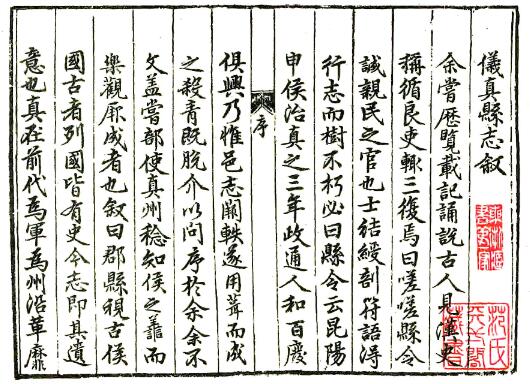 儀真縣志叙
余嘗歷覽載記誦說古人見漢史
稱循良吏輒三復焉曰嗟嗟縣令
誠親民之官也士結綬剖符語得
行志而樹不朽必曰縣令云昆陽
申侯治真之三年政通人和百廢
序
俱興乃惟邑志闕軼遂用葺而成
之殺青既脫介以問序於余余不
文盖嘗部使真州稔知侯之而
樂觀厥成者也叙曰郡縣視古侯
國古者列國皆有史今志即其遺
意也真在前代為軍為州沿革靡
范氏
天一閣
藏書